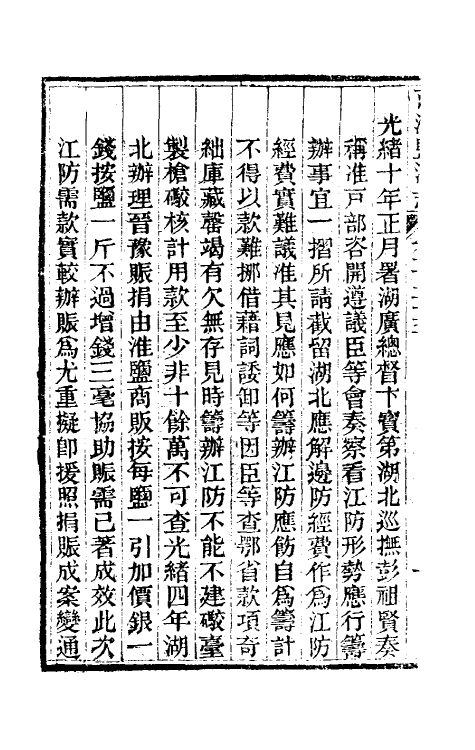 光緒十年正月署湖廣總督卞寶第湖北巡撫彭祖賢奏
稱准戸部咨開遵議臣等會奏察看江防形勢應行籌
辦事宜一摺所請截留湖北應解邊防經費作爲江防
經費實難議准其見應如何籌辦江防應飭自爲籌計
不得以款難挪借藉詞諉卸等因臣等查鄂省款項奇
絀庫藏罄竭有欠無存見時籌辦江防不能不建礮臺
製槍礮核計用款至少非十餘萬不可查光緒四年湖
北辦理晉豫賑捐由淮鹽商販按每鹽一引加價銀一
錢按鹽一斤不過增錢三毫協助賑需已著成效此次
江防需款實較辦賑爲尤重擬卽援照捐賑成案變通